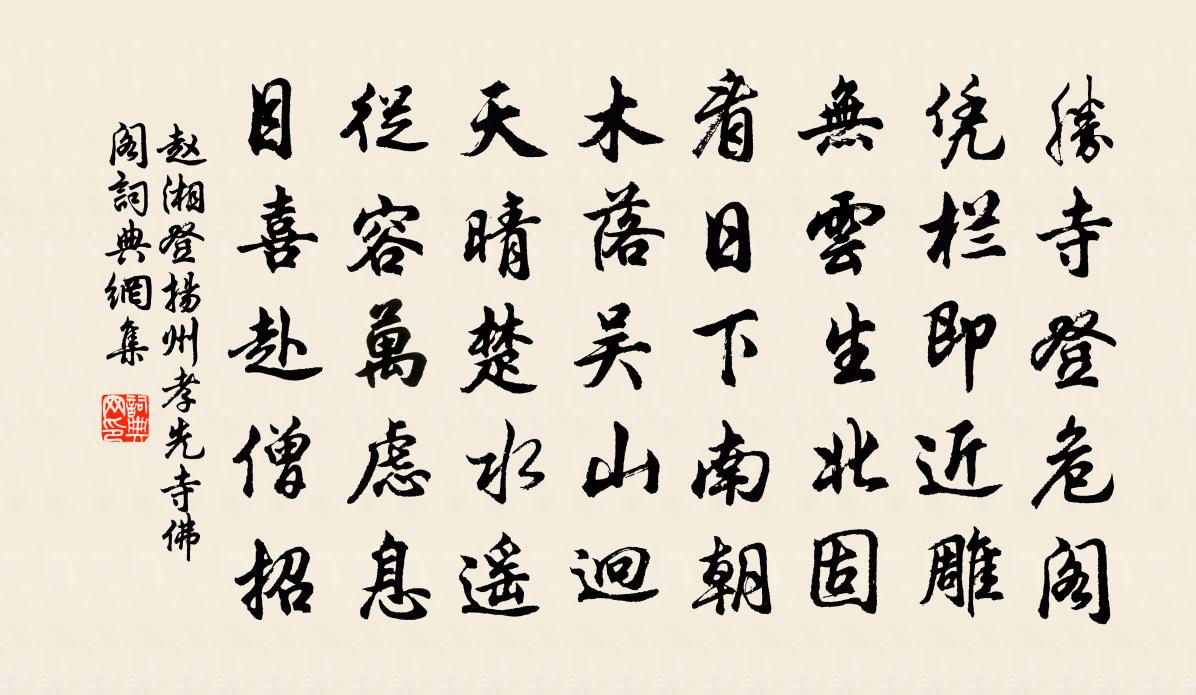 勝寺登危阁
凭栏即近雕
無雲生北固
看日下南朝
木落吴山迥
天晴楚水遥
從容萬虑息
目喜赴僧招
赵湘登揚州孝先寺佛
阁詞典網集
詞典网印